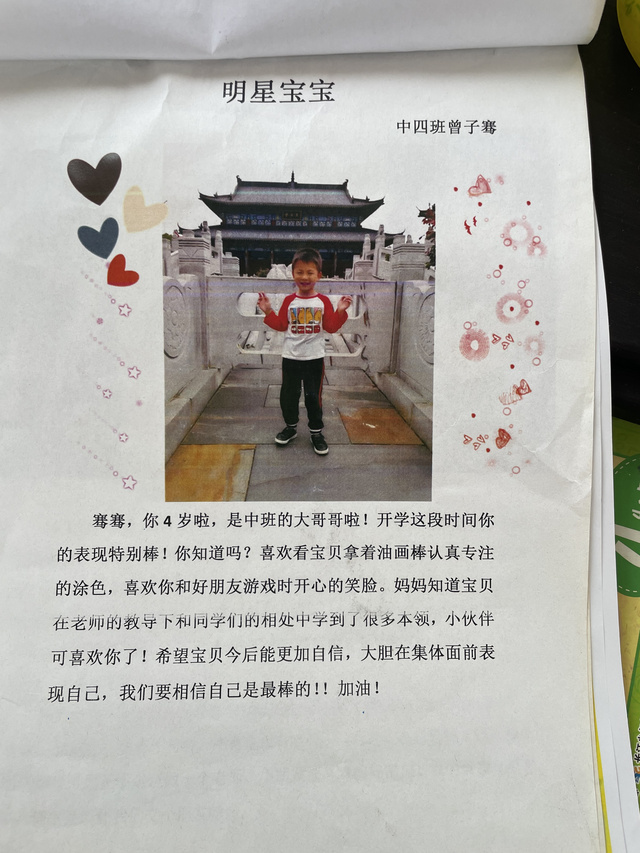 明星宝宝
中四班曾子骞
骞骞，你 4 岁啦，是中班的大哥哥啦！开学这段时间你
的表现特别棒！你知道吗？喜欢看宝贝拿着油画棒认真专注
的涂色，喜欢你和好朋友游戏时开心的笑脸。妈妈知道宝贝
在老师的教导下和同学们的相处中学到了很多本领，小伙伴
可喜欢你了！希望宝贝今后能更加自信，大胆在集体面前表
现自己，我们要相信自己是最棒的!！加油！